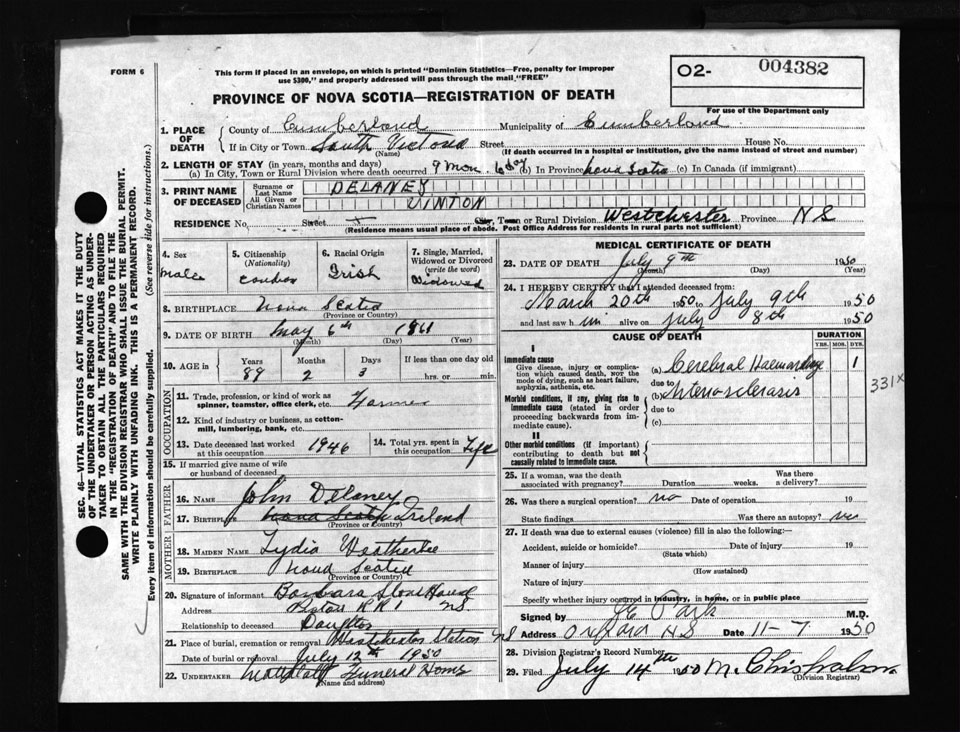 FORM 6
This form if placed in an envelope, on which is printed "Dominion Statistics—Free, penalty for improper
use $300," and properly addressed will pass through the mail "FREE"
O2- 004382
For use of the Department only
PROVINCE OF NOVA SCOTIA—REGISTRATION OF DEATH
1. PLACE OF DEATH { County of Cumberland Municipality of Cumberland
If in City or Town South Victoria Street House No.
(Name) (If death occurred in a hospital or institution, give the name instead of street and number)
2. LENGTH OF STAY (in years, months and days)
(a) In City, Town or Rural Division where death occurred 9 Mon. 6 day (b) In Province Nova Scotia (c) In Canada (if immigrant)
3. PRINT NAME OF DECEASED { Surname or Last Name DELANEY
All Given or Christian Names VINTON
RESIDENCE No. Street City, Town or Rural Division Westchester Province N S
(Residence means usual place of abode. Post Office Address for residents in rural parts not sufficient)
4. Sex male
5. Citizenship (Nationality)
6. Racial Origin Irish
7. Single, Married, Widowed or Divorced (write the word) Widowed
8. BIRTHPLACE Nova Scotia
(Province or Country)
9. DATE OF BIRTH May 6th 1861
(Month) (Day) (Year)
10. AGE in { Years Months Days If less than one day old
89 2 3 hrs. or min.
OCCUPATION
11. Trade, profession, or kind of work as spinner, teamster, office clerk, etc. Farmer
12. Kind of industry or business, as cotton-mill, lumbering, bank, etc.
13. Date deceased last worked at this occupation 1946
14. Total yrs. spent in this occupation Life
15. If married give name of wife or husband of deceased
FATHER
16. NAME John Delaney
17. BIRTHPLACE Nova Scotia Ireland
(Province or Country)
MOTHER
18. MAIDEN NAME Lydia Weatherbee
19. BIRTHPLACE Nova Scotia
(Province or Country)
20. Signature of informant Barbara Stonehouse
Address R R 1 N.S.
Relationship to deceased Daughter
21. Place of burial, cremation or removal Westchester Station NS
Date of burial or removal July 12th 1950
22. UNDERTAKER Funeral Home
(Name and address)
MEDICAL CERTIFICATE OF DEATH
23. DATE OF DEATH July 9th 1950
(Month) (Day) (Year)
24. I HEREBY CERTIFY that I attended deceased from:
March 20th 1950 to July 9th 1950
and last saw him alive on July 8th 1950
CAUSE OF DEATH
DURATION
YRS. MOS. DYS.
I
Immediate cause
Give disease, injury or complication which caused death, NOT the mode of dying, such as heart failure, asphyxia, asthenia, etc.
(a) Cerebral Haemorrhage 1
due to
Morbid conditions, if any, giving rise to immediate cause (stated in order proceeding backwards from immediate cause).
(b) Arteriosclerosis
due to
(c)
331x
II
Other morbid conditions (if important) contributing to death but not causally related to immediate cause.
25. If a woman, was the death associated with pregnancy? Duration weeks. Was there a delivery?
26. Was there a surgical operation? no Date of operation 19
State findings Was there an autopsy? no
27. If death was due to external causes (violence) fill in also the following:—
Accident, suicide or homicide? Date of injury 19
(State which)
Manner of injury
(How sustained)
Nature of injury
Specify whether injury occurred in industry, in home, or in public place
Signed by Park M.D.
Address Oxford N S Date 11-7 1950
28. Division Registrar's Record Number
29. Filed July 14th 1950 M. Chisholm
(Division Registrar)
SEC. 46—VITAL STATISTICS ACT MAKES IT THE DUTY
OF THE UNDERTAKER OR PERSON ACTING AS UNDER-
TAKER TO OBTAIN ALL THE PARTICULARS REQUIRED
IN THE "REGISTRATION OF DEATH" AND TO FILE THE
SAME WITH THE DIVISION REGISTRAR WHO SHALL ISSUE THE BURIAL PERMIT.
WRITE PLAINLY WITH UNFADING INK. THIS IS A PERMANENT RECORD.
Every item of information should be carefully supplied. (See reverse side for instructions.)